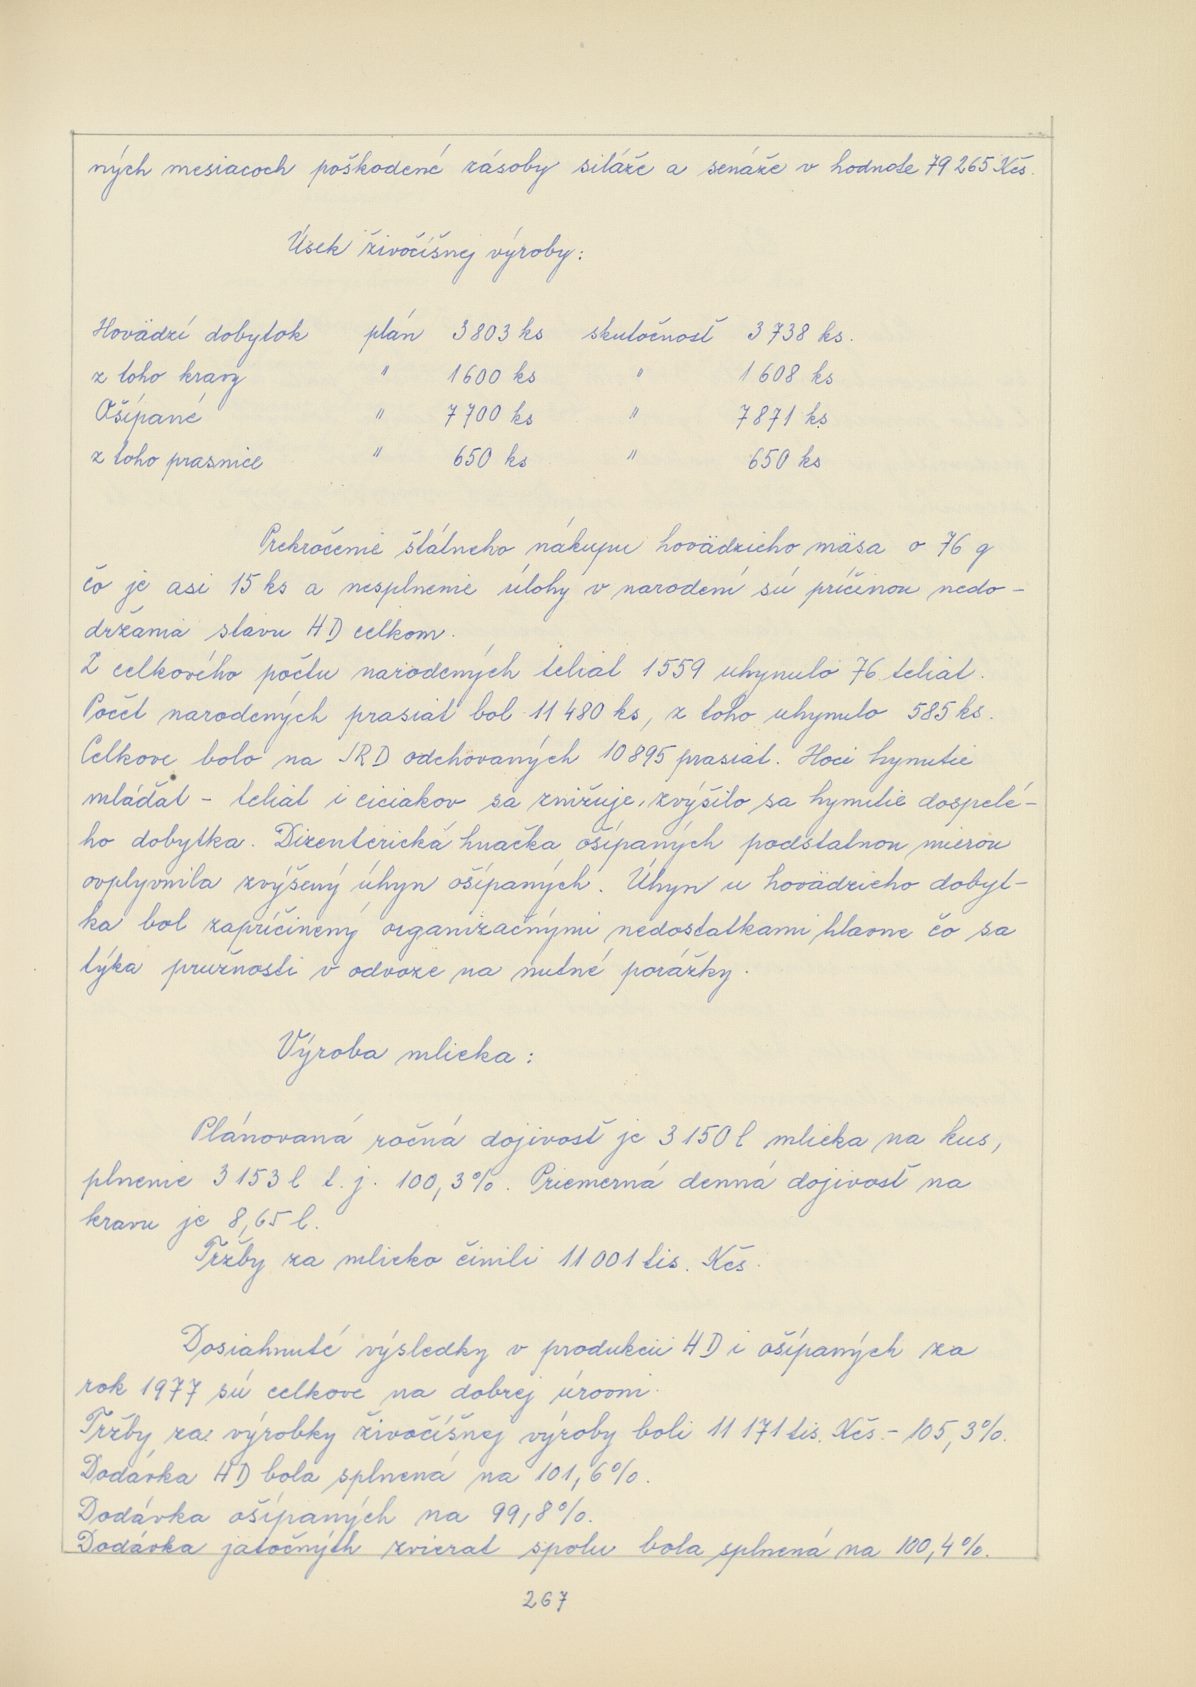 ných mesiacoch poškodené zásoby siláže a senáže v hodnote 79 265 Kčs.
Úsek živočíšnej výroby:
Hovädzí dobytok plán 3 803 ks skutočnosť 3 738 ks.
z toho kravy " 1 600 ks " 1 608 ks
Ošípané " 7 700 ks " 7 871 ks
z toho prasnice " 650 ks " 650 ks
Prekročenie štátneho nákupu hovädzieho mäsa o 76 q
čo je asi 15 ks a nesplnenie úlohy v narodení sú príčinou nedo-
držania stavu HD celkom.
Z celkového počtu narodených teliat 1559 uhynulo 76 teliat.
Počet narodených prasiat bol 11 480 ks, z toho uhynulo 585 ks.
Celkove bolo na JRD odchovaných 10 895 prasiat. Hoci hynutie
mláďat - teliat i ciciakov sa znižuje, zvýšilo sa hynutie dospelé-
ho dobytka. Dizenterická hnačka ošípaných podstatnou mierou
ovplyvnila zvýšený úhyn ošípaných. Úhyn u hovädzieho dobyt-
ka bol zapríčinený organizačnými nedostatkami hlavne čo sa
týka pružnosti v odvoze na nutné porážky.
Výroba mlieka:
Plánovaná ročná dojivosť je 3 150 l mlieka na kus,
plnenie 3 153 l t. j. 100,3%. Priemerná denná dojivosť na
kravu je 8,65 l.
Tržby za mlieko činili 11 001 tis. Kčs.
Dosiahnuté výsledky v produkcii HD i ošípaných za
rok 1977 sú celkove na dobrej úrovni.
Tržby za výrobky živočíšnej výroby boli 11 171 tis. Kčs. - 105,3%.
Dodávka HD bola splnená na 101,6%.
Dodávka ošípaných na 99,8%.
Dodávka jatočných zvierat spolu bola splnená na 100,4%.
267